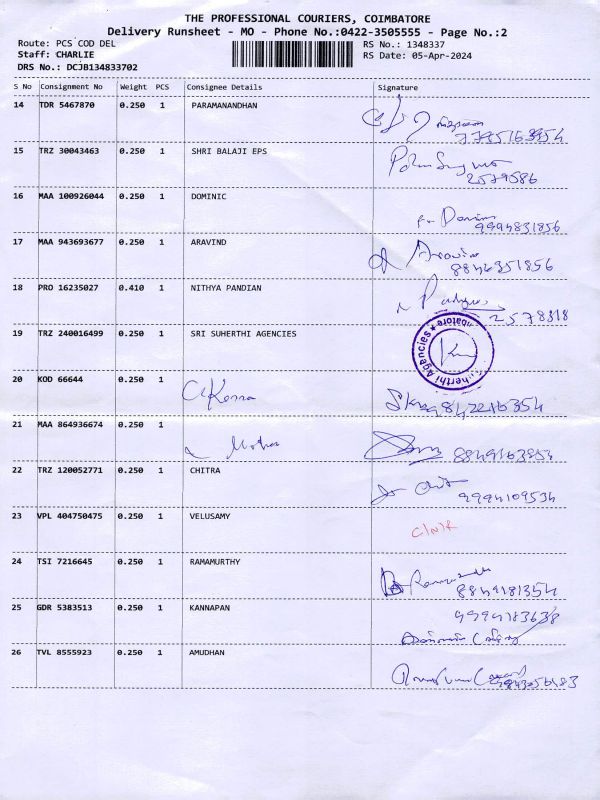 THE PROFESSIONAL COURIERS, COIMBATORE
Delivery Runsheet - MO - Phone No.:0422-3505555 - Page No.:2
Route: PCS COD DEL RS No.: 1348337
Staff: CHARLIE RS Date: 05-Apr-2024
DRS No.: DCJB134833702
S No Consignment No Weight PCS Consignee Details Signature
14 TDR 5467870 0.250 1 PARAMANANDHAN
15 TRZ 30043463 0.250 1 SHRI BALAJI EPS
2579586
16 MAA 100926044 0.250 1 DOMINIC
9994831856
17 MAA 943693677 0.250 1 ARAVIND
Aravin
8846351856
18 PRO 16235027 0.410 1 NITHYA PANDIAN
2578318
19 TRZ 240016499 0.250 1 SRI SUHERTHI AGENCIES
herthi Agencies ★ ibatore
20 KOD 66644 0.250 1
9842216354
21 MAA 864936674 0.250 1
8849163854
22 TRZ 120052771 0.250 1 CHITRA
9994109534
23 VPL 404750475 0.250 1 VELUSAMY
24 TSI 7216645 0.250 1 RAMAMURTHY
8849181354
25 GDR 5383513 0.250 1 KANNAPAN
26 TVL 8555923 0.250 1 AMUDHAN